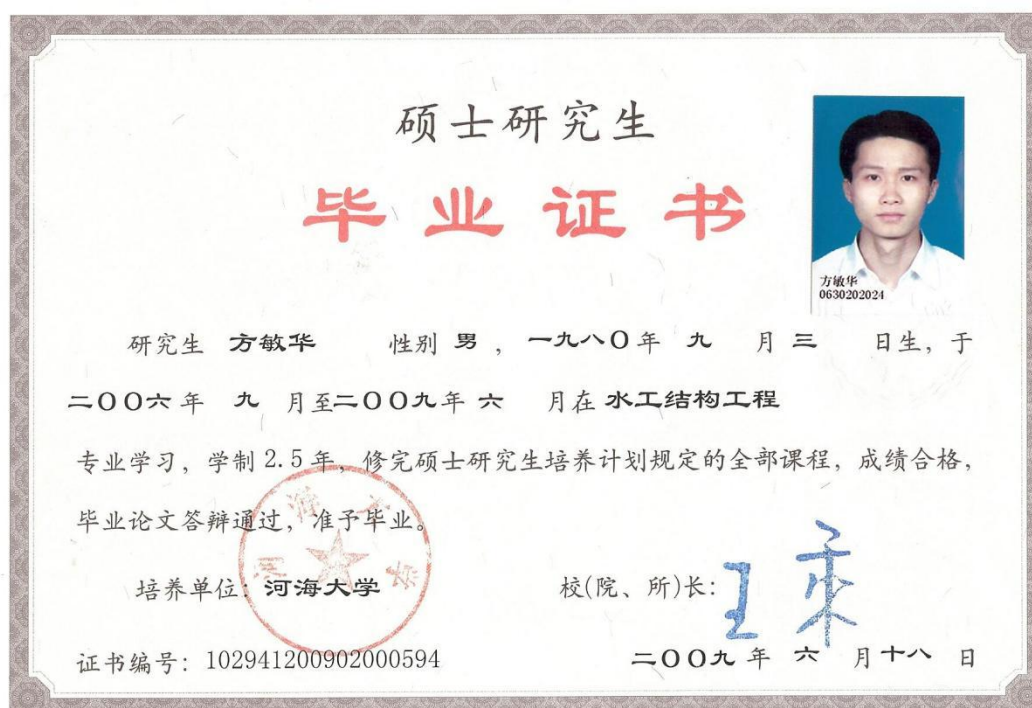 硕士研究生
毕业证书
方敏华
0630202024
研究生 方敏华 性别 男 ， 一九八〇年 九 月 三 日生，于
二〇〇六 年 九 月至二〇〇九年 六 月在 水工结构工程
专业学习，学制 2.5 年，修完硕士研究生培养计划规定的全部课程，成绩合格，
毕业论文答辩通过，准予毕业。
河海大学
培养单位：河海大学 校(院、所)长：王乘
证书编号：102941200902000594 二〇〇九 年 六 月十八 日